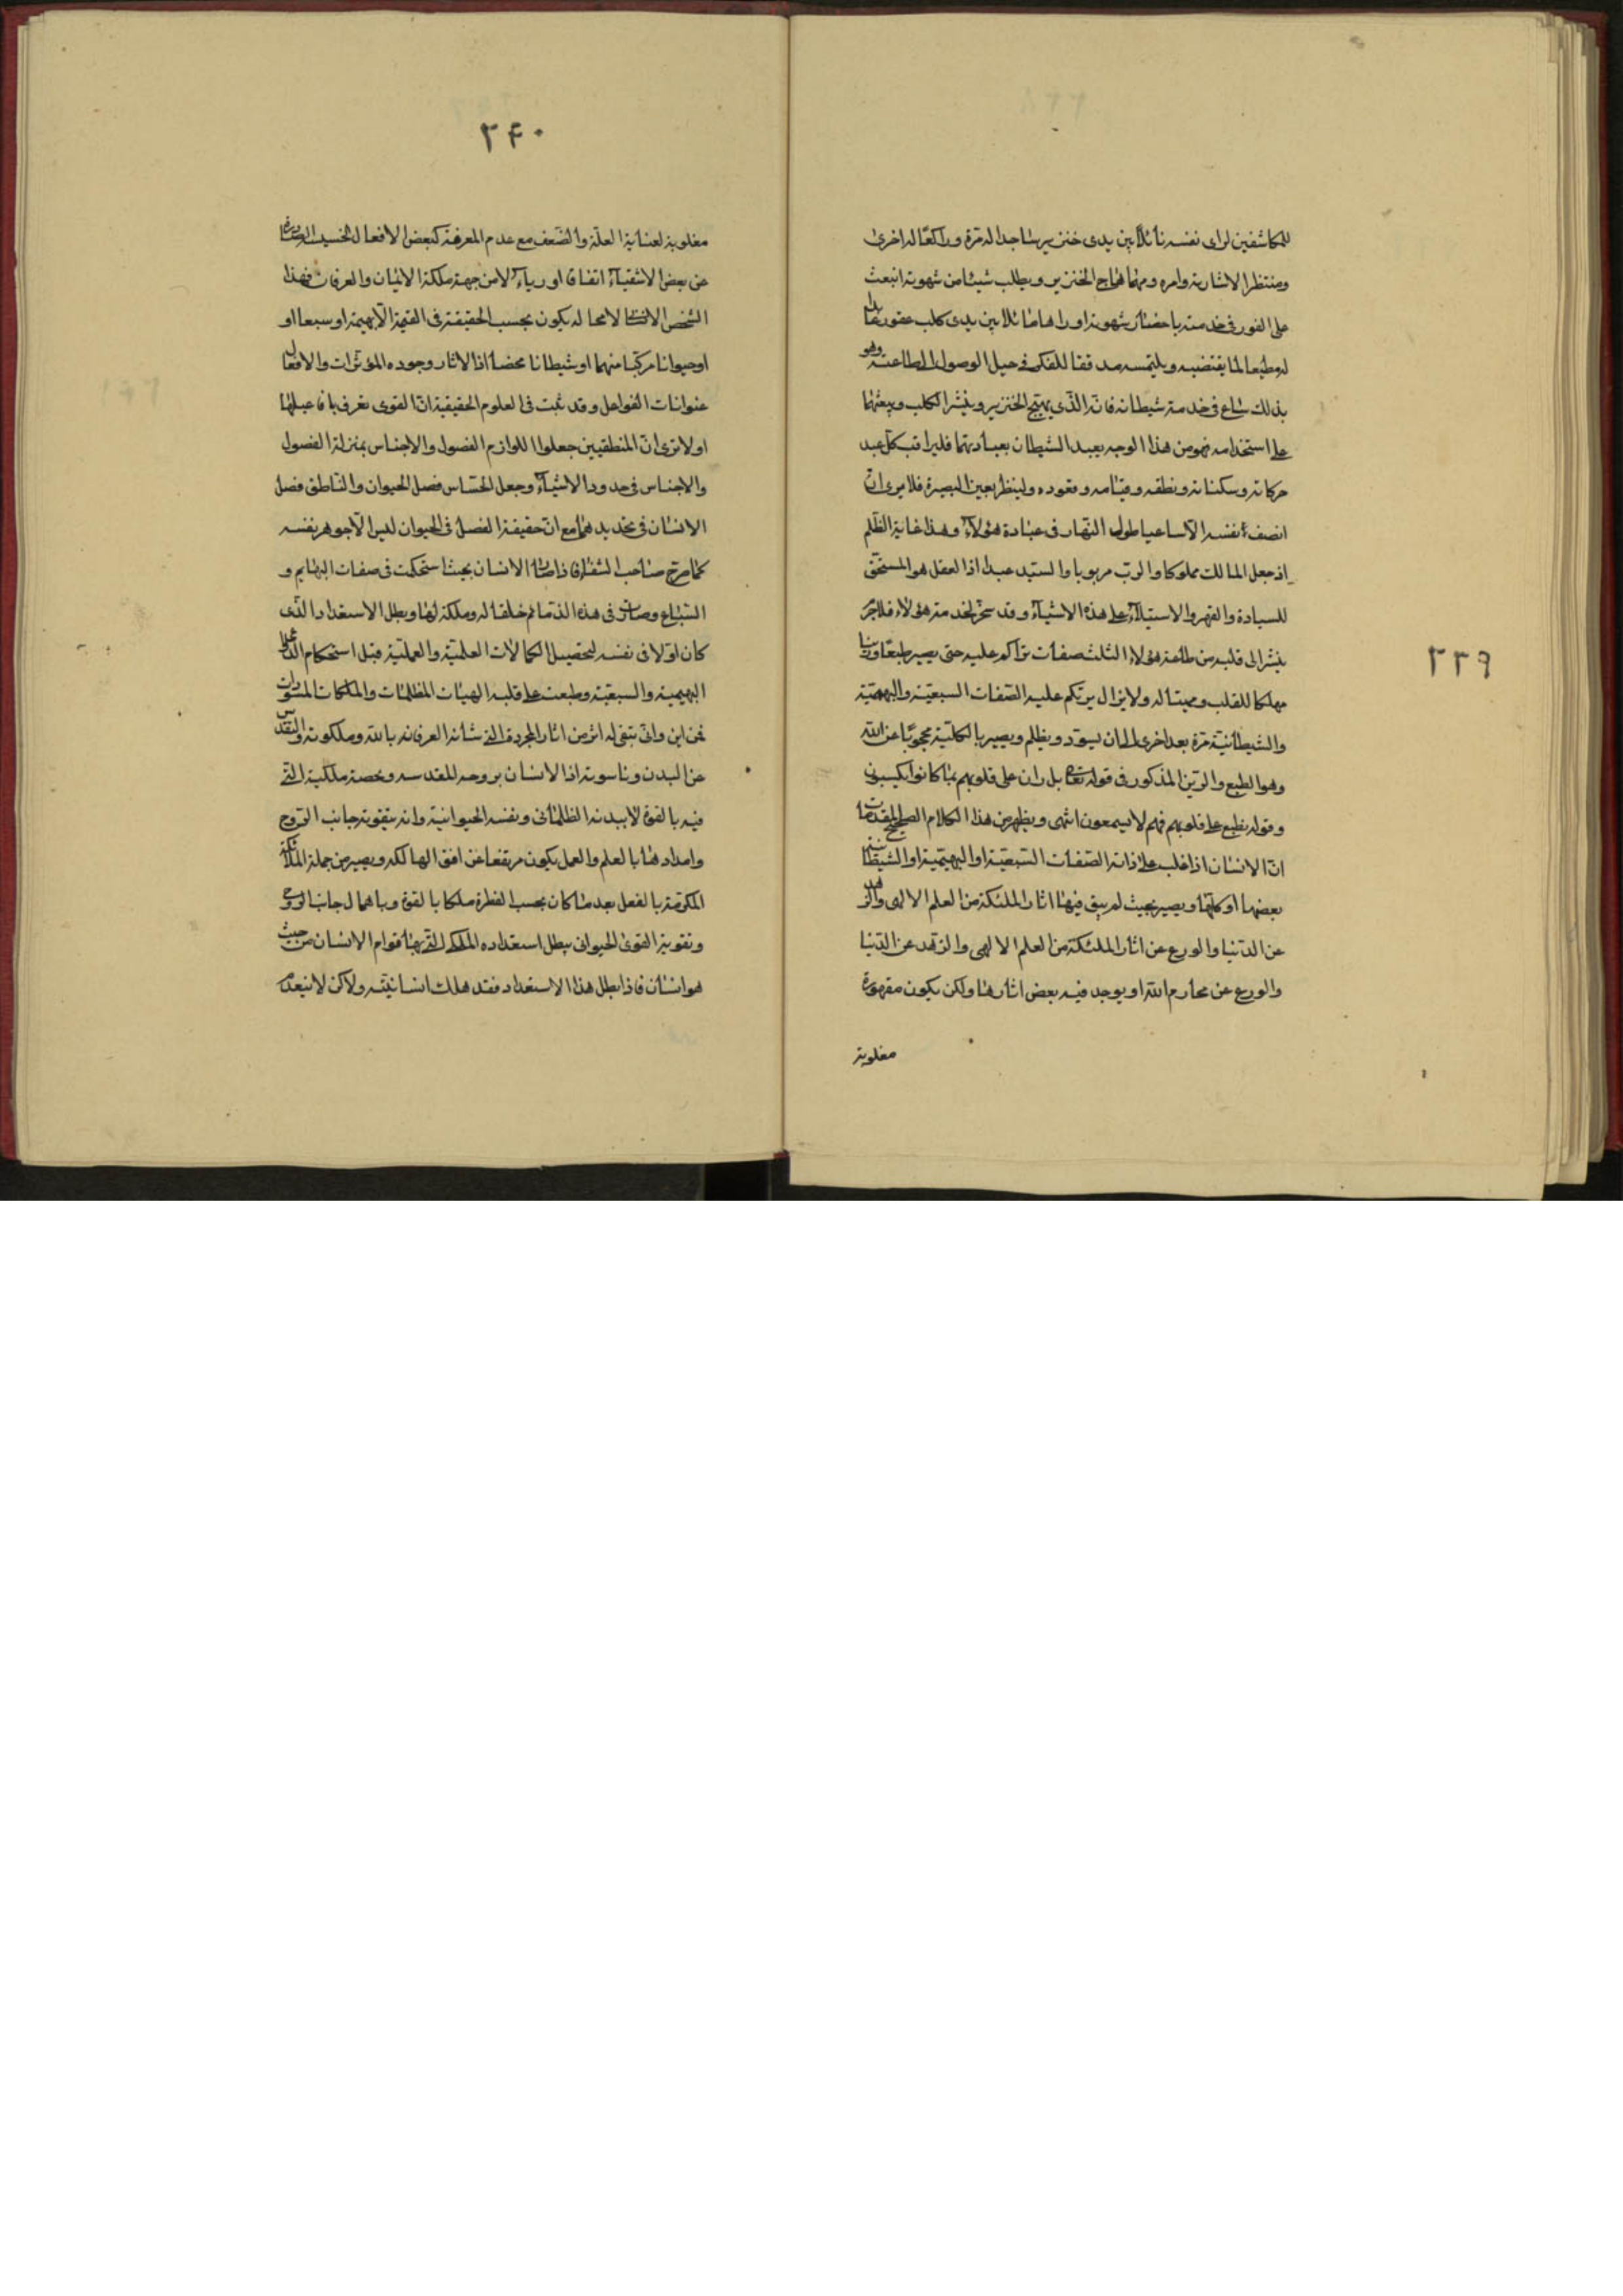 ٢٣٩
للمكاشفين لرأى نفسه ماثلا بين يدى خنزير ساجدا له مرة وراكعا له اخرى
ومنتظرا لاشارته وامره ومهما هاج الخنزير ويطلب شيئا من شهوته انبعث
على الفور فى خدمته باحضار شهوته او راها ماثلا بين يدى كلب عقور عابدا
له مطيعا لما يقتضيه ويلتمسه مدققا للفكر فى حيل الوصول الى طاعته وهو
بذلك ساع فى خدمة شيطانه فانه الذى يهيج الخنزير وينشر الكلب ويبعثهما
على استخدامه فهو من هذا الوجه يعبد الشيطان بعبادتهما فليراقب كل عبد
حركاته وسكناته ونطقه وقيامه وقعوده ولينظر بعين البصيرة فلا يرى ان
انصف نفسه الا ساعيا طول النهار فى عبادة هؤلاء وهذا غاية الظلم
اذ جعل المالك مملوكا والرب مربوبا والسيد عبدا اذ العقل هو المستحق
للسيادة والقهر والاستيلاء على هذه الاشياء وقد سخر لخدمة هؤلاء فلا جرم
ينشر الى قلبه من طاعة هؤلاء الثلث صفات تراكم عليه حتى يصير طبعا ورينا
مهلكا للقلب ومميتا له ولا يزال يرتكم عليه الصفات السبعية والبهيمية
والشيطانية مرة بعد اخرى الى ان يسود ويظلم ويصير بالكلية محجوبا عن الله
وهو الطبع والرين المذكور فى قوله تعا بل ران على قلوبهم ما كانوا يكسبون
وقوله يطبع على قلوبهم فهم لا يسمعون انتهى ويظهر من هذا الكلام الصحيح المقدمات
ان الانسان اذا غلب على ذاته الصفات السبعية او البهيمية او الشيطانية
بعضها او كلها ويصير بحيث لم يبق فيها اثار الملئكة من العلم الالهى والزهد
عن الدنيا والورع عن اثار الملئكة من العلم الالهى والزهد عن الدنيا
والورع عن محارم الله او يوجد فيه بعض اثارها ولكن يكون مقهورة
مغلوبة
٢۴٠
مغلوبة لعناية العلة والضعف مع عدم المعرفة كبعض الافعال الحسنة الصادرة
عن بعض الاشقياء اتفاقا او رياء لا من جهة ملكة الايمان والعرفان فهذا
الشخص الانسانى لا محاله يكون بحسب الحقيقة فى القيمة الا بهيمة او سبعا او
او حيوانا مركبا منهما او شيطانا محضا اذ الاثار وجوده المؤثرات والافعال
عنوانات الفواعل وقد ثبت فى العلوم الحقيقية ان القوى تعرف بافاعيلها
اولا ترى ان المنطقيين جعلوا اللوازم الفصول والاجناس بمنزلة الفصول
والاجناس فى حدود الاشياء وجعل الحساس فصل الحيوان والناطق فصل
الانسان فى تحديدهما مع ان حقيقة الفصل فى الحيوان ليس الا جوهر نفسه
كما صرح صاحب الشفا فاذا صار الانسان بحيث استحكمت فى صفات البهايم و
السباع وصارت فى هذه الذمائم خلقا له وملكة لها وبطل الاستعداد الذى
كان اولا فى نفسه لتحصيل الكمالات العلمية والعملية قبل استحكام
البهيمية والسبعية وطبعت على قلبه الهيئات المظلمات والملكات
فمن اين وانى يبقى له اثر من اثار المجردة التى شأنه العرفان بالله وملكوته والتقدس
عن البدن وناسوته اذ الانسان بروحه المقدسه وبحصة ملكية التى
فيه بالقوة لا ببدنه الظلمانى ونفسه الحيوانية وانه بتقويته جانب الروح
وامدادها بالعلم والعمل يكون مرتفعا عن افق الهالكه ويصير من جملة الملائكة
المكرمة بالفعل بعد ما كان بحسب الفطرة ملكا بالقوة وباهمال جانب الروح
وتقوية القوى الحيوانى يبطل استعداده الملكى التى بها قوام الانسان من حيث
هو انسان فاذا بطل هذا الاستعداد فقد هلك انسانيته ولاكن لا ينعدم